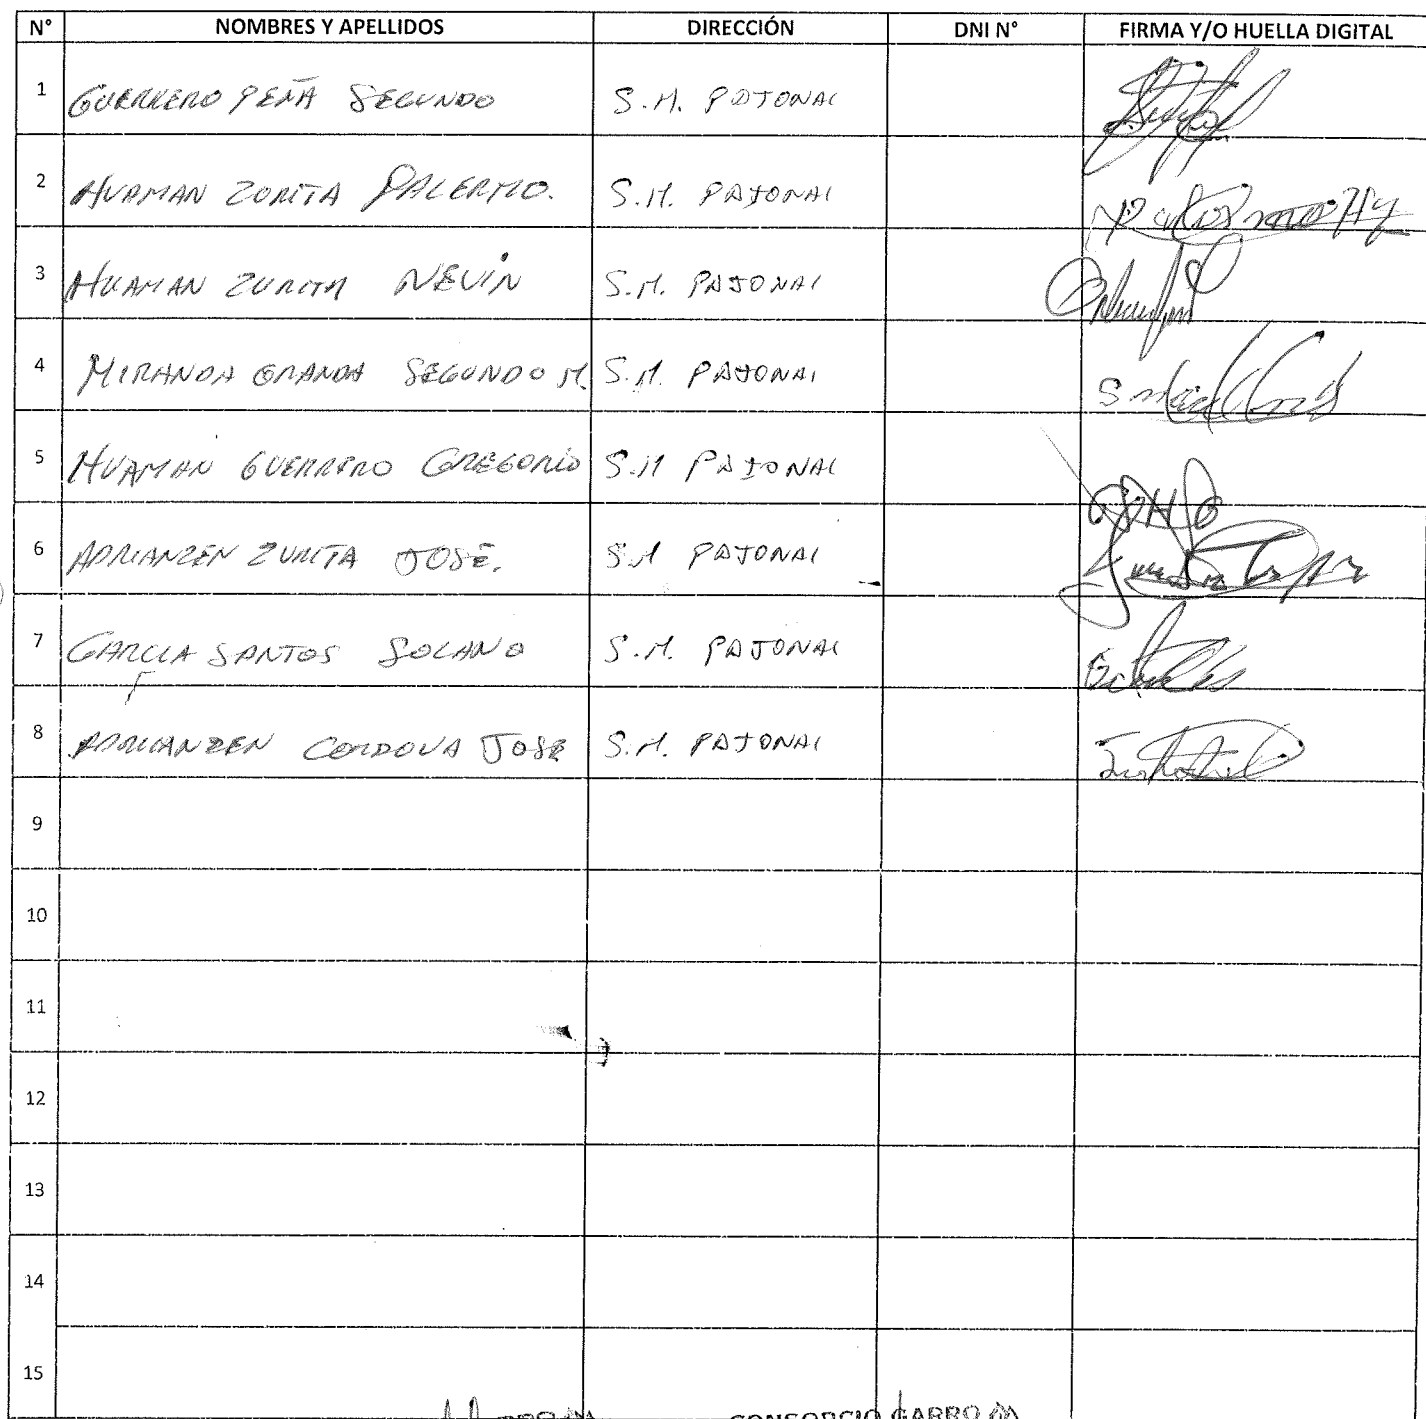 N° NOMBRES Y APELLIDOS DIRECCIÓN DNI N° FIRMA Y/O HUELLA DIGITAL
1 GUERRERO PEÑA SEGUNDO S.M. PAJONAL
2 HUAMAN ZURITA PALERMO. S.M. PAJONAL
3 HUAMAN ZURITA NEVIN S.M. PAJONAL
4 MIRANDA GRANDA SEGUNDO M. S.M. PAJONAL
5 HUAMAN GUERRERO GREGORIO S.M PAJONAL
6 ADRIANZEN ZURITA JOSE. S.M PAJONAL
7 GARCIA SANTOS SOLANO S.M. PAJONAL
8 ADRIANZEN CORDOVA JOSE S.M. PAJONAL
9
10
11
12
13
14
15
CONSORCIO GARRO